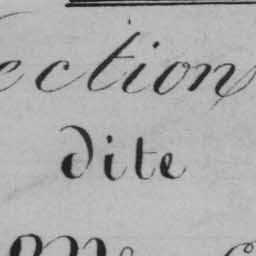 ection
dite